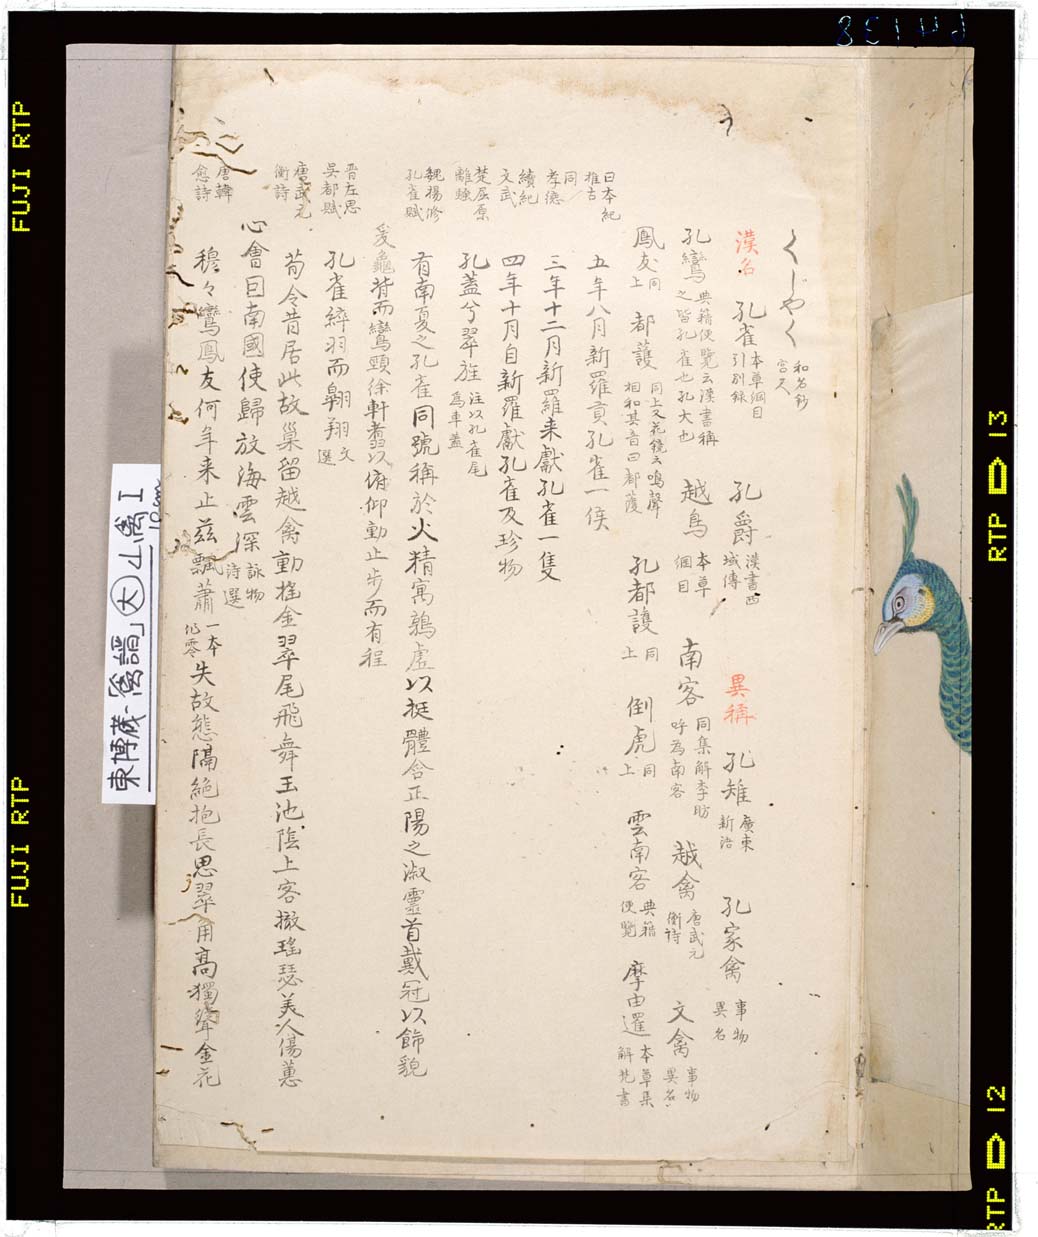 くじやく 和名鈔 宮人
漢名 孔雀 本草綱目 引別録 孔爵 漢書西域傳 異稱 孔雉 廣東新語 孔家禽 事物異名
孔鸞 典籍便覽云漢書稱之皆孔雀也孔大也 越鳥 本草綱目 南客 同集解李昉呼為南客 越禽 唐武元衡詩 文禽 事物異名
鳳友 同上 都護 同上又花鏡云鳴聲相和其音曰都護 孔都護 同上 倒虎 同上 雲南客 典籍便覽 摩由邏 本草集解梵書
日本紀 推古 五年八月新羅貢孔雀一侯
同 孝德 三年十二月新羅来獻孔雀一隻
續紀 文武 四年十月自新羅獻孔雀及珍物
楚屈原 離騷 孔蓋兮翠旌 注以孔雀尾為車蓋
魏楊修 孔雀賦 有南夏之孔雀同號稱於火精寓鶉虛以挺體含正陽之淑靈首戴冠以飾貌
爰龜背而鸞頸徐軒翥以俯仰動止步而有程
晋左思 吳都賦 孔雀綷羽而翺翔 文選
唐武元衡詩 荀令昔居此故巢留越禽動搖金翠尾飛舞玉池陰上客撤瑤瑟美人傷蕙
心會曰南國使歸放海雲深 詠物詩選
唐韓愈詩 穆々鸞鳳友何年来止茲飄蕭 一本作零 失故態隔絶抱長思翠角高獨聳金花
東博蔵-「禽譜」大 ∠禽 I
10cm
FUJI RTP
FUJI RTP
RTP 13
RTP 12